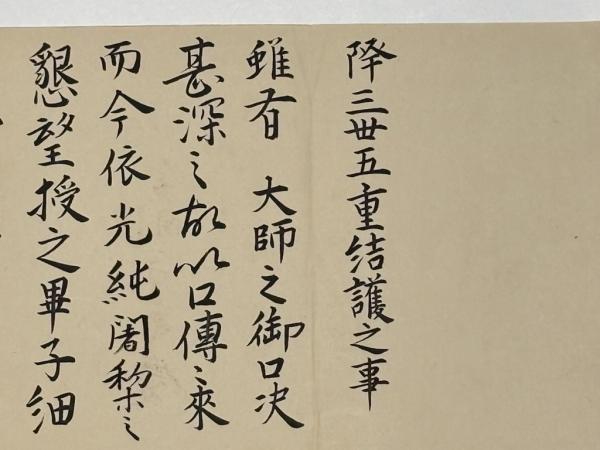 降三世五重結護之事
雖有 大師之御口决
甚深之故以口傳〻來
而今依光純闍梨之
懇望授之畢子細